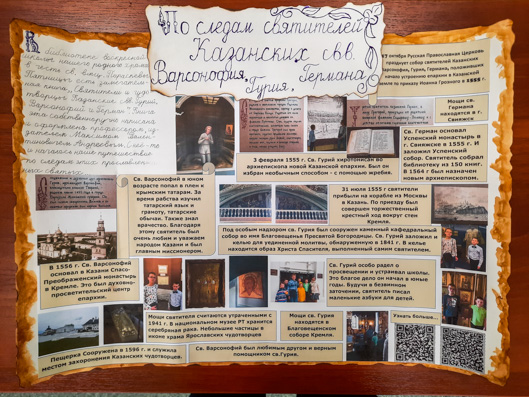 По следам святителей
Казанских свв.
Варсонофия, Германа,
Гурия,
В библиотеке воскресной
школы нашего родного храма
в честь св. вмц. Параскевы
Пятницы есть замечатель-
ная книга „Святители и чудо-
творцы Казанские свв. Гурий,
Варсонофий и Герман". Книга
эта собственноручно написана
и оформлена профессором, из-
дателем Максимом Вален-
тиновичем Андреевым. С неё-то
и началось наше путешествие
по следам этих прославлен-
ных святых.
октября Русская Православная Церковь
празднует собор святителей Казанских
Варсонофия, Гурия, Германа, положивших
начало утреннию епархии в Казанской
земле по приказу Иоанна Грозного в 1555 г.
Мощи св.
Германа
находятся в г.
Свияжск
Св. Герман основал
Успенский монастырь в
г. Свияжске в 1555 г. И
заложил Успенский
собор. Святитель собрал
библиотеку из 150 книг.
В 1564 г был назначен
новым архиепископом.
3 февраля 1555 г. Св. Гурий хиротонисан во
архиепископа новой Казанской епархии. Был он
избран необычным способом - с помощью жребия.
Св. Варсонофий в юном
возрасте попал в плен к
крымским татарам. За
время рабства изучил
татарский язык и
грамоту, татарские
обычаи. Также знал
врачество. Благодаря
этому святитель был
очень любим и уважаем
народом Казани и был
главным миссионером.
31 июля 1555 г святители
прибыли на корабле из Москвы
в Казань. По приезду был
совершен торжественный
крестный ход вокруг стен
Кремля.
Под особым надзором св. Гурия был сооружен каменный кафедральный
собор во имя Благовещенья Пресвятой Богородицы. Св. Гурий заложил и
келью для уединенной молитвы, обнаруженную в 1841 г. В келье
находится образ Христа Спасителя, выполненный самим святителем.
В 1556 г. Св. Варсонофий
основал в Казани Спасо-
Преображенский монастырь
в Кремле. Это был духовно-
просветительский центр
епархии.
Св. Гурий особо радел о
просвещении и устраивал школы.
Это благое дело он начал в юные
годы. Будучи в безвинном
заточение, святитель писал
маленькие азбуки для детей.
Мощи святителя считаются утраченными с
1941 г. В национальном музее РТ хранится
серебряная рака. Небольшие частицы в
иконе храма Ярославских чудотворцев
Мощи св. Гурия
находятся в
Благовещенском
соборе Кремля.
Узнать больше...
Пещерка Сооружена в 1596 г. и служила
местом захоронения Казанских чудотворцев.
Св. Варсонофий был любимым другом и верным
помощником св.Гурия.